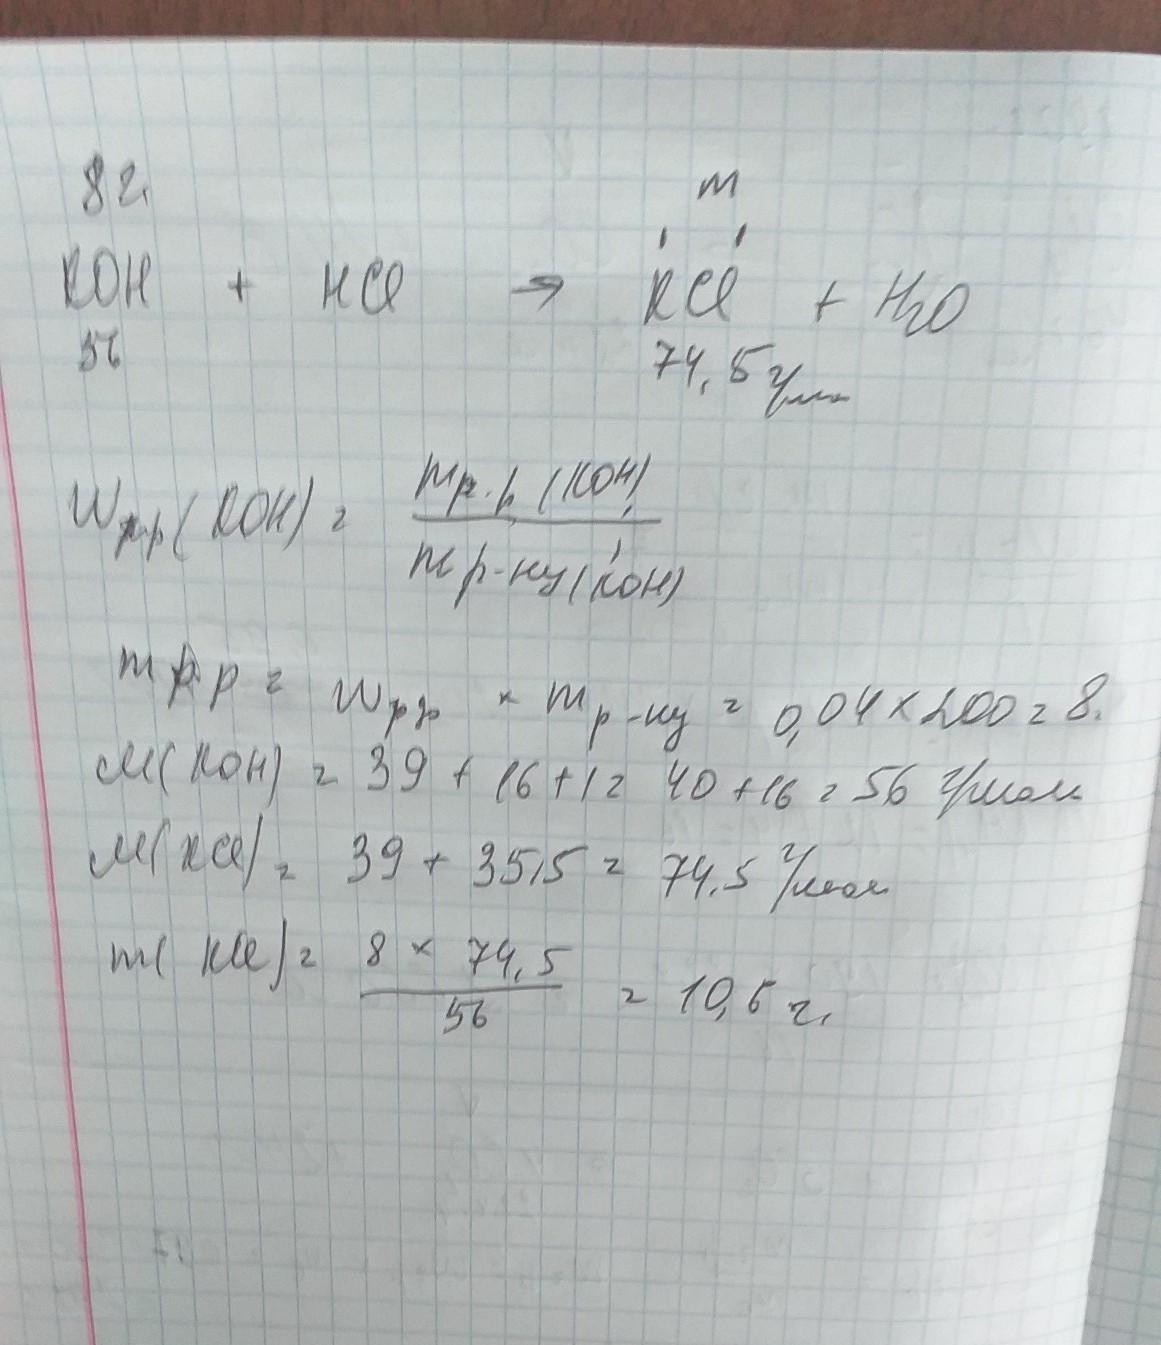 8 г. m
KOH + HCl → KCl + H₂O
56 74,5 г/моль
W р.р (KOH) = m р.р (KOH) / m р-ну (KOH)
m р.р = W р.р × m р-ну = 0,04 × 200 = 8.
M(KOH) = 39 + 16 + 1 = 40 + 16 = 56 г/моль
M(KCl) = 39 + 35,5 = 74,5 г/моль
m(KCl) = 8 × 74,5 / 56 = 10,6 г.